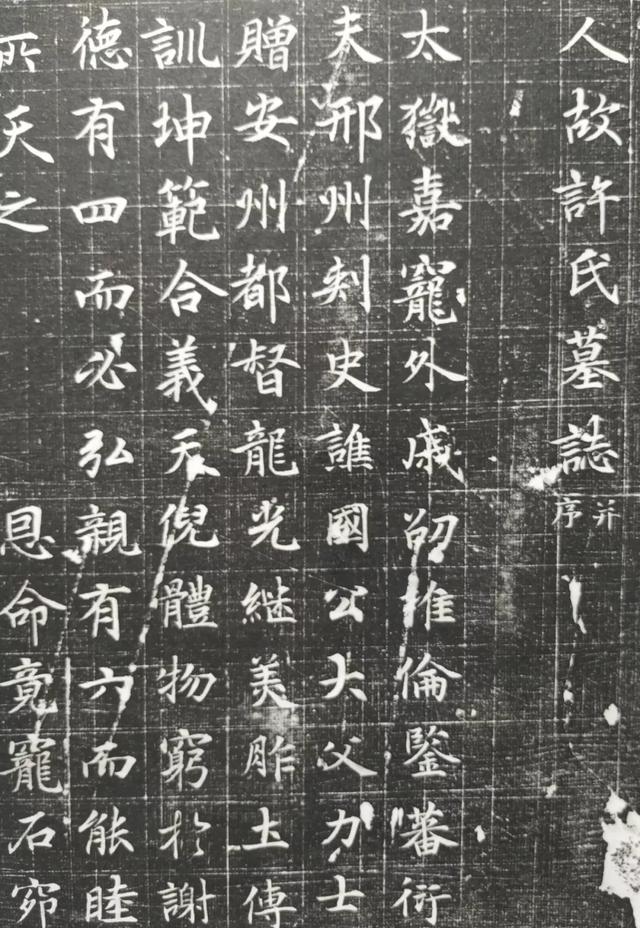 人故許氏墓誌并序
太嶽嘉寵外戚邵推倫鑒蕃衍
夫邢州刾史譙國公大父力士
贈安州都督龍光継美胙土傳
訓坤範合義天倪體物窮於謝
德有四而必弘親有六而能睦
所天之 恩命竟寵石窌